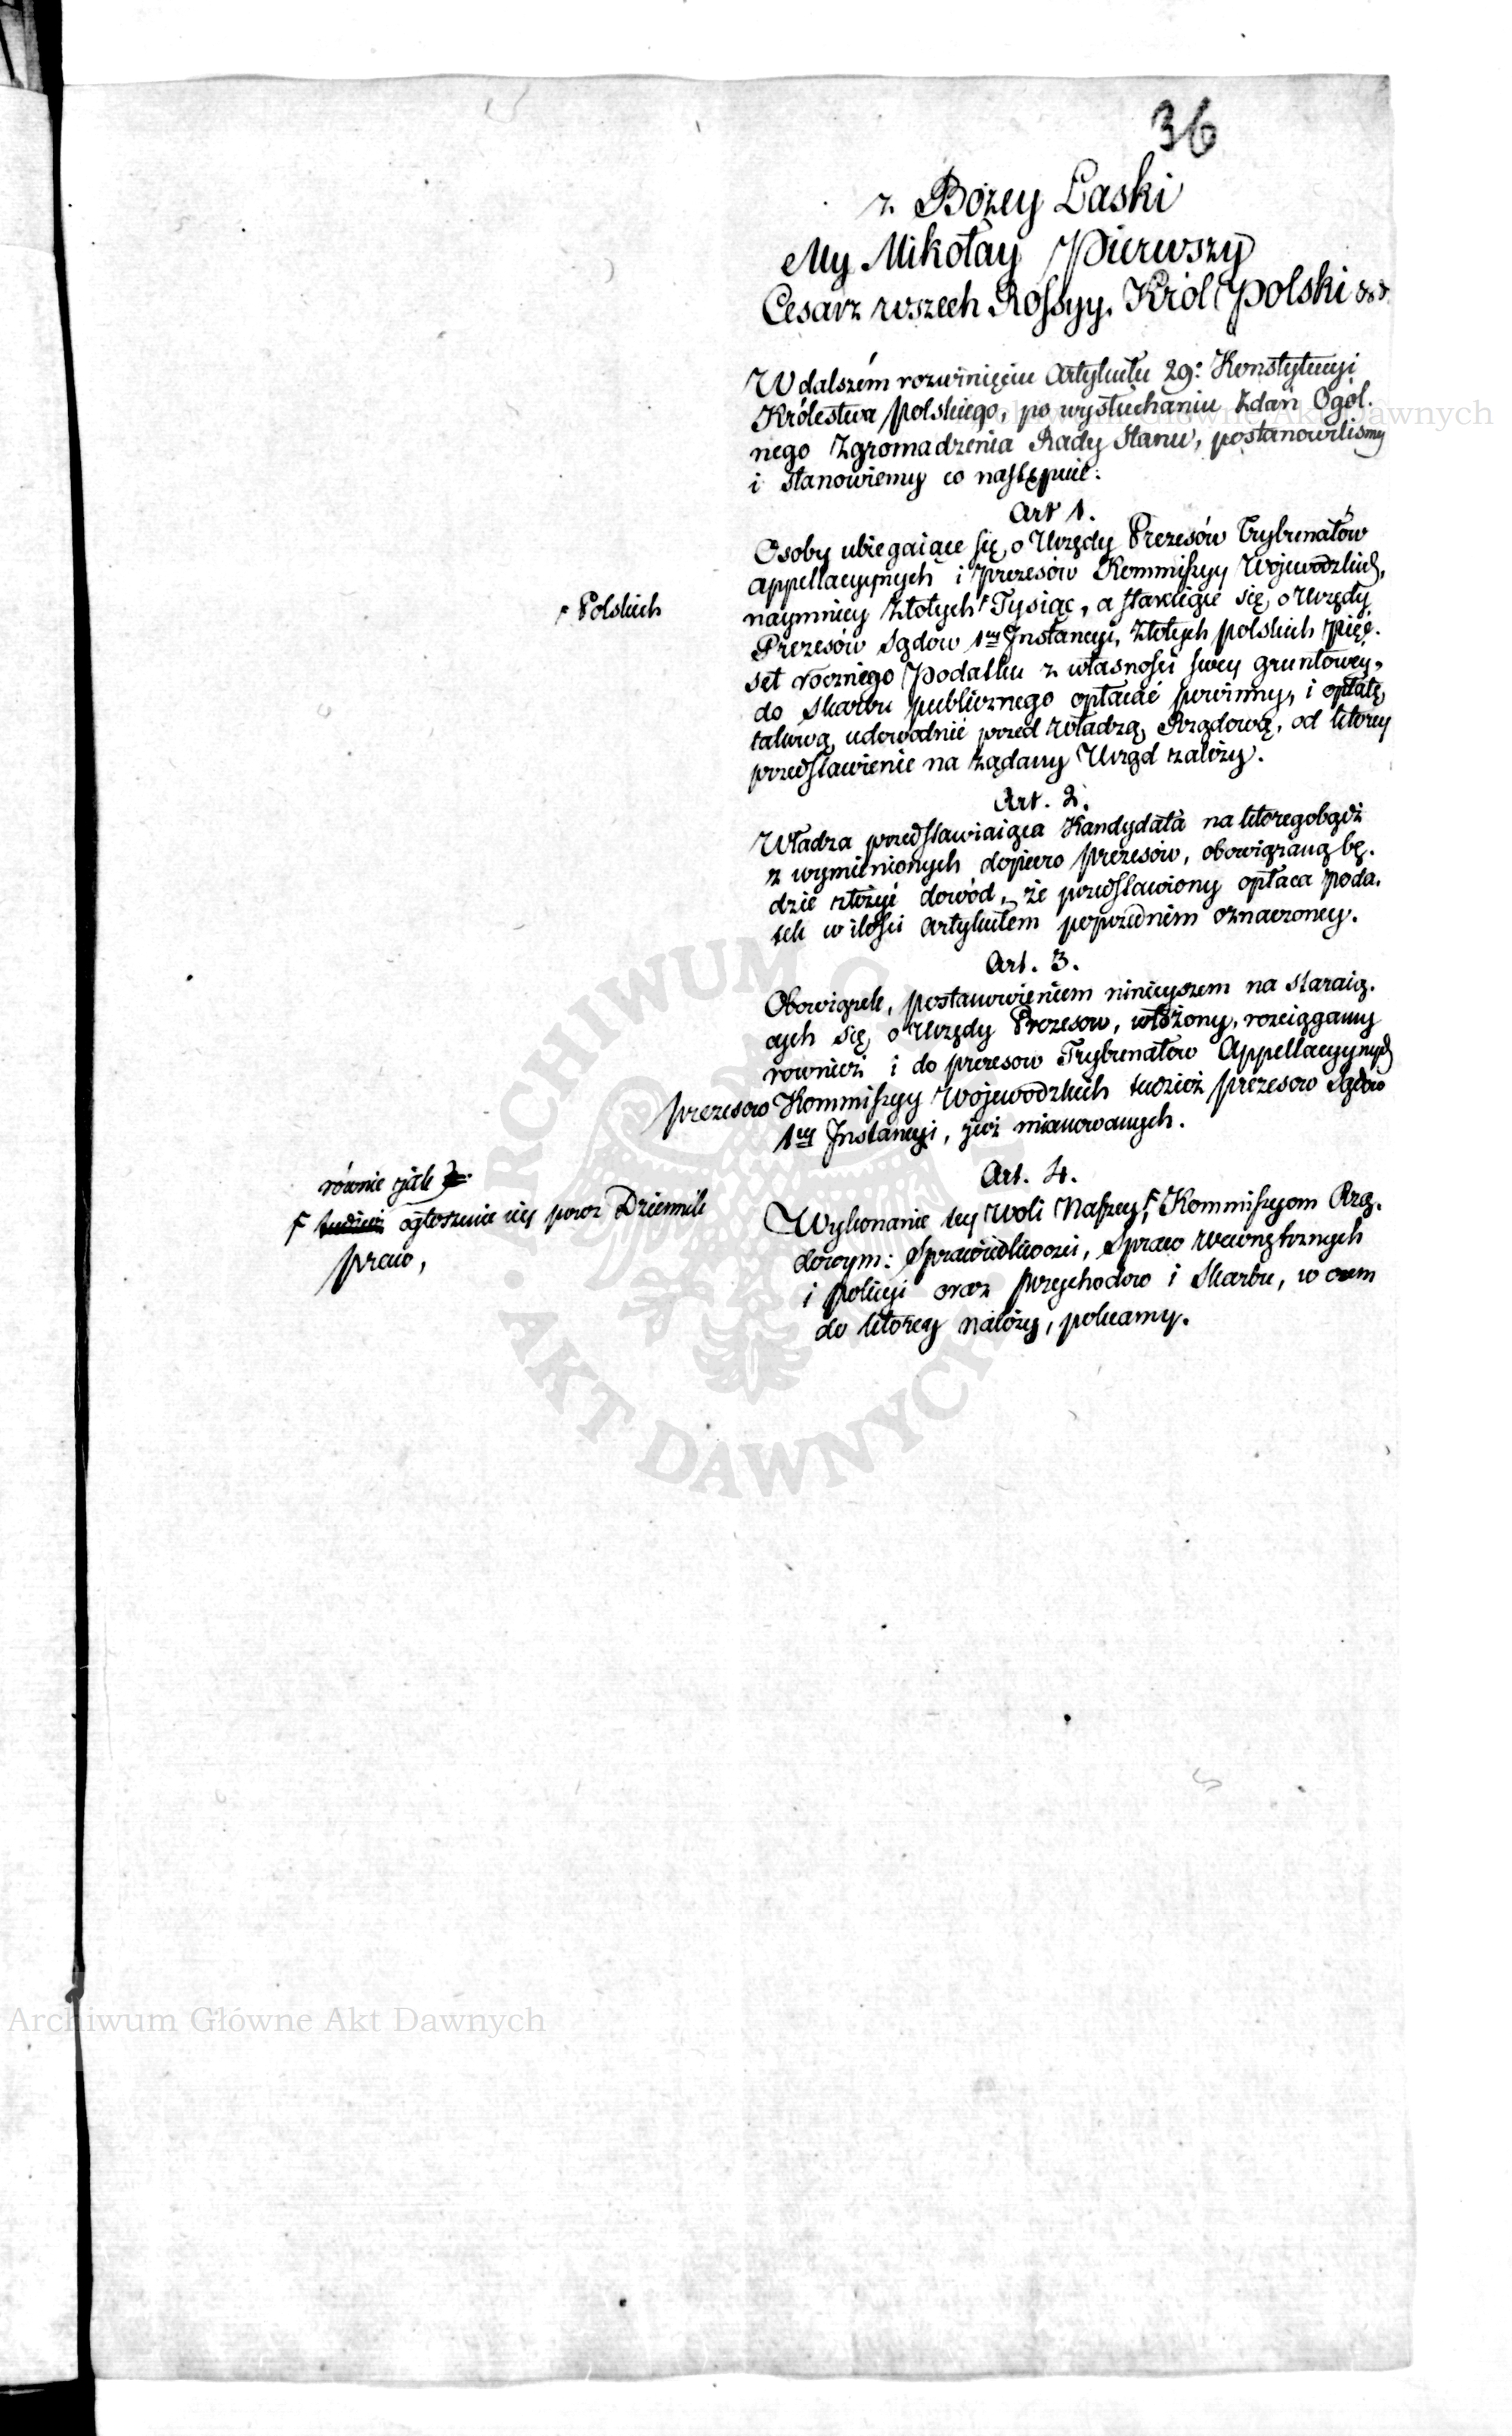 36
z Bożey Łaski
My Mikołay Pierwszy
Cesarz wszech Rossyy, Król Polski &&
W dalszém rozwinięciu Artykułu 29º Konstytucyi
Królestwa Polskiego, po wysłuchaniu Zdań Ogól-
nego Zgromadzenia Rady Stanu, postanowiliśmy
i stanowiemy co następuie:
Art 1.
Osoby ubiegaiące się, o Urzędy Prezesów Trybunałów
Appellacyynych i Prezesów Kommissyy Woiewodzkich,
naymniey Złotych Tysiąc, a staraiące się o Urzędy
Polskich
Prezesów Sądów 1ey Instancyi, Złotych polskich Pięć-
set rocznego Podatku z własności swey gruntowéy,
do Skarbu publicznego opłacać powinny, i opłatę
takową udowodnić przed Władzą Rządową, od którey
przedstawienie na żądany Urząd zależy.
Art. 2.
Władza przedstawiaiąca Kandydata na któregobądź
z wymienionych dopiero Prezesów, obowiązaną bę-
dzie złożyć dowód, że przedstawiony opłaca Poda-
tek w ilości Artykułem poprzednim oznaczoney.
Art. 3.
Obowiązek, postanowieniem ninieyszem na staraią-
cych się o Urzędy Prezesow, włożony, rozciągamy
rownież i do prezesow Trybunałow Appellacyynych
prezesow Kommissyy Wojewodzkich tudzież prezesow Sądow
1ey Instancyi, już mianowanych.
Art. 4.
Wykonanie tey Woli Naszey, Kommissyom Rzą-
równie jak
tudzież ogłoszenie iey przez Dziennik
praw,
dowym: Sprawiedliwości, Spraw Wewnętrznych
i Policyi oraz Przychodow i Skarbu, w czem
do którey należy, polecamy.
Archiwum Główne Akt Dawnych
ARCHIWUM GŁÓWNE
AKT DAWNYCH
Archiwum Główne Akt Dawnych